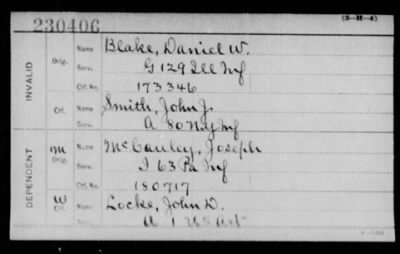 230406 (3-H-4)
INVALID
Orig. Name Blake, Daniel W.
Serv. G 129 Ill Inf
Ctf. No. 173346
Ctf. Name Smith, John J.
Serv. A 80 N.Y. Inf
DEPENDENT
M Orig. Name McCauley, Joseph
Serv. I 63 Pa Inf
Ctf. No. 180717
W Ctf. Name Locke, John D.
A 1 US Art